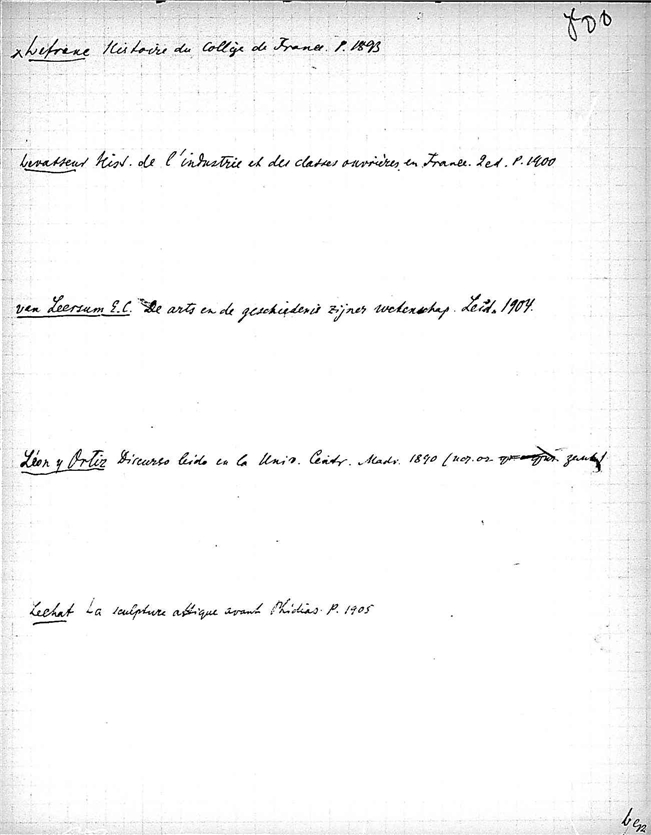 700
x Lefranc Histoire du Collège de France. P. 1893
Levasseur Hist. de l'industrie et des classes ouvrières en France. 2 ed. P. 1900
van Leersum E.C. De arts en de geschiedenis zijner wetenschap. Leid. 1904.
Léon y Ortiz Discurso leido en la Univ. Centr. Madr. 1890
Lechat La sculpture attique avant Phidias. P. 1905